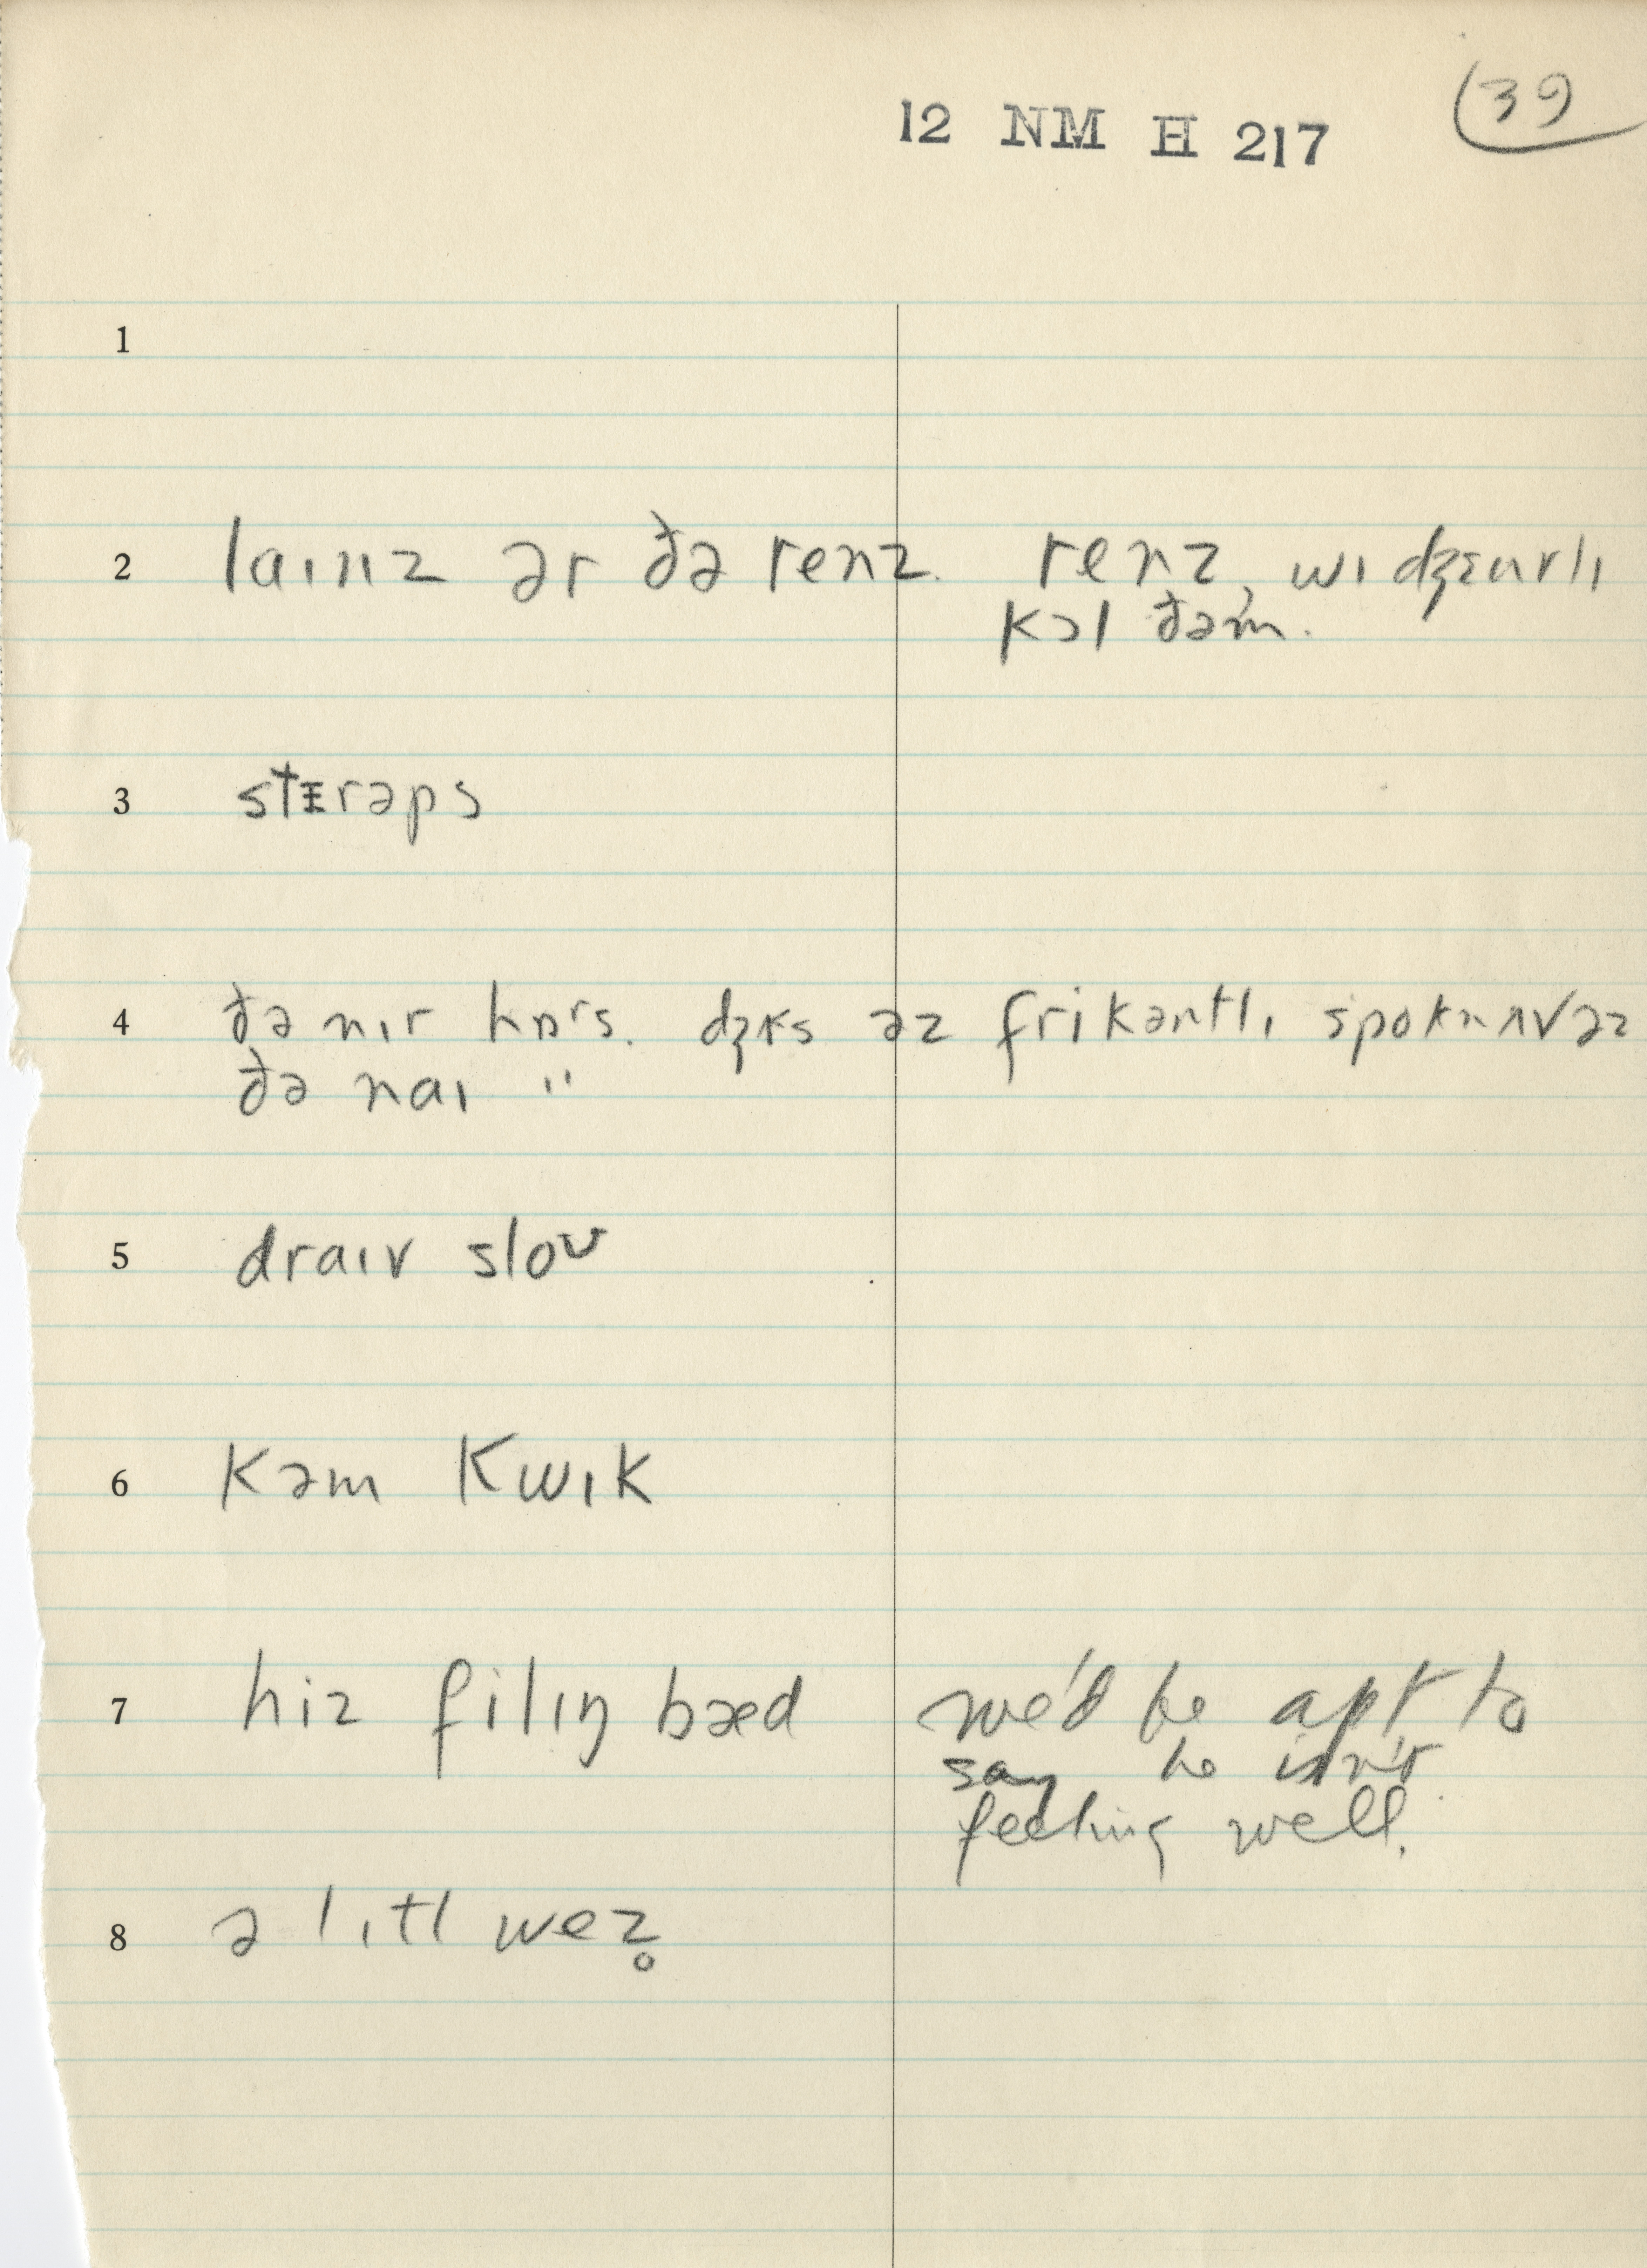 39
12 NM H 217
1
2 laɪnz ər ðə renz. renz, wɪ dʒɛnrlɪ
kɔl ðəm.
3 stɪrəps
4 ðə nɪr hɒrs. əz frikəntlɪ ðə naɪ "
5 draɪv sloʊ
6 kəm kwɪk
7 hiz filɪŋ bæd we'd be apt to
say he isn't
feeling well.
8 ə lɪtl wez̥